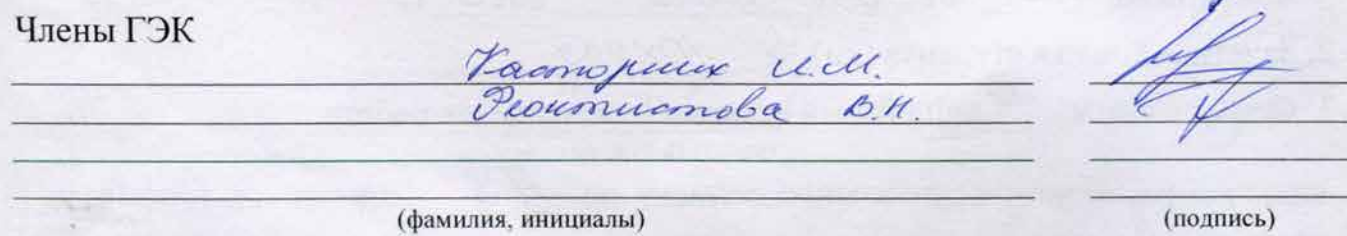 Члены ГЭК
Касторных И.М.
Феоктистова В.Н.
(фамилия, инициалы) (подпись)